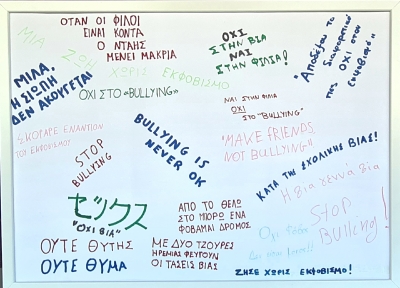 ΟΤΑΝ ΟΙ ΦΙΛΟΙ
ΕΙΝΑΙ ΚΟΝΤΑ
Ο ΝΤΑΗΣ
ΜΕΝΕΙ ΜΑΚΡΙΑ
ΟΧΙ
ΣΤΗΝ ΒΙΑ
ΝΑΙ
ΣΤΗΝ ΦΙΛΙΑ!
"Αποδέξου το
διαφορετικό
πες ΟΧΙ στον
εκφοβισμό"
ΜΙΑ ΖΩΗ ΧΩΡΙΣ ΕΚΦΟΒΙΣΜΟ
ΜΙΛΑ,
Η ΣΙΩΠΗ
ΔΕΝ ΑΚΟΥΓΕΤΑΙ
ΟΧΙ ΣΤΟ «BULLYING»
ΝΑΙ ΣΤΗΝ ΦΙΛΙΑ
ΟΧΙ
ΣΤΟ "BULLYING"
ΕΝΑΝΤΙΟΝ
ΤΟΥ ΕΚΦΟΒΙΣΜΟΥ
STOP
BULLYING
BULLYING IS
NEVER OK
"MAKE FRIENDS
NOT BULLYING"
ΚΑΤΑ ΤΗΣ ΣΧΟΛΙΚΗΣ ΒΙΑΣ!
Η βια γεννά βια
セックス
"ΟΧΙ ΒΙΑ"
ΑΠΟ ΤΟ ΘΕΛΩ
ΣΤΟ ΜΠΟΡΩ ΕΝΑ
ΦΟΒΑΜΑΙ ΔΡΟΜΟΣ
STOP
Bulling!
ΟΥΤΕ ΘΥΤΗΣ
ΟΥΤΕ ΘΥΜΑ
ΜΕ ΔΥΟ ΤΖΟΥΡΕΣ
ΗΡΕΜΙΑΣ ΦΕΥΓΟΥΝ
ΟΙ ΤΑΣΕΙΣ ΒΙΑΣ
ΖΗΣΕ ΧΩΡΙΣ ΕΚΦΟΒΙΣΜΟ!